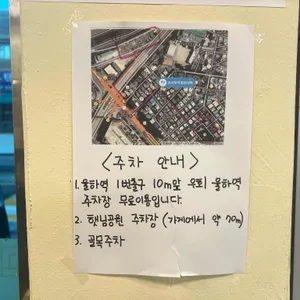 <주차 안내>
1. 율하역 1번출구 10m앞 우회 율하역
주차장 무료이용입니다.
2. 햇님공원 주차장 (가게에서 약 70m)
3. 골목주차